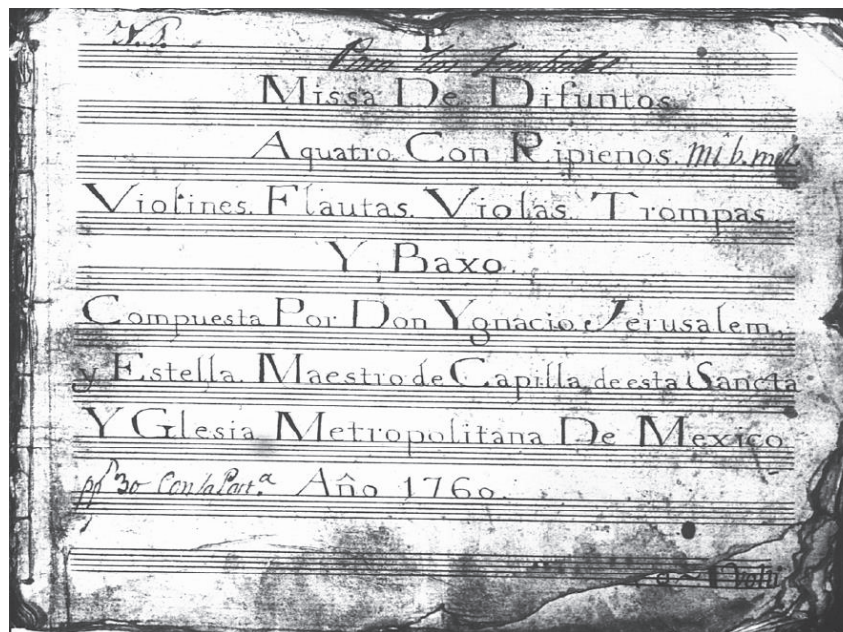 Missa De Difuntos.
A quatro. Con Ripienos. mi b. mol
Violines. Flautas. Violas. Trompas
Y, Baxo.
Compuesta Por Don Ygnacio Jerusalem,
y Estella. Maestro de Capilla de esta Sancta
Y Glesia Metropolitana De Mexico
30 Con la Part.ª Año 1760.